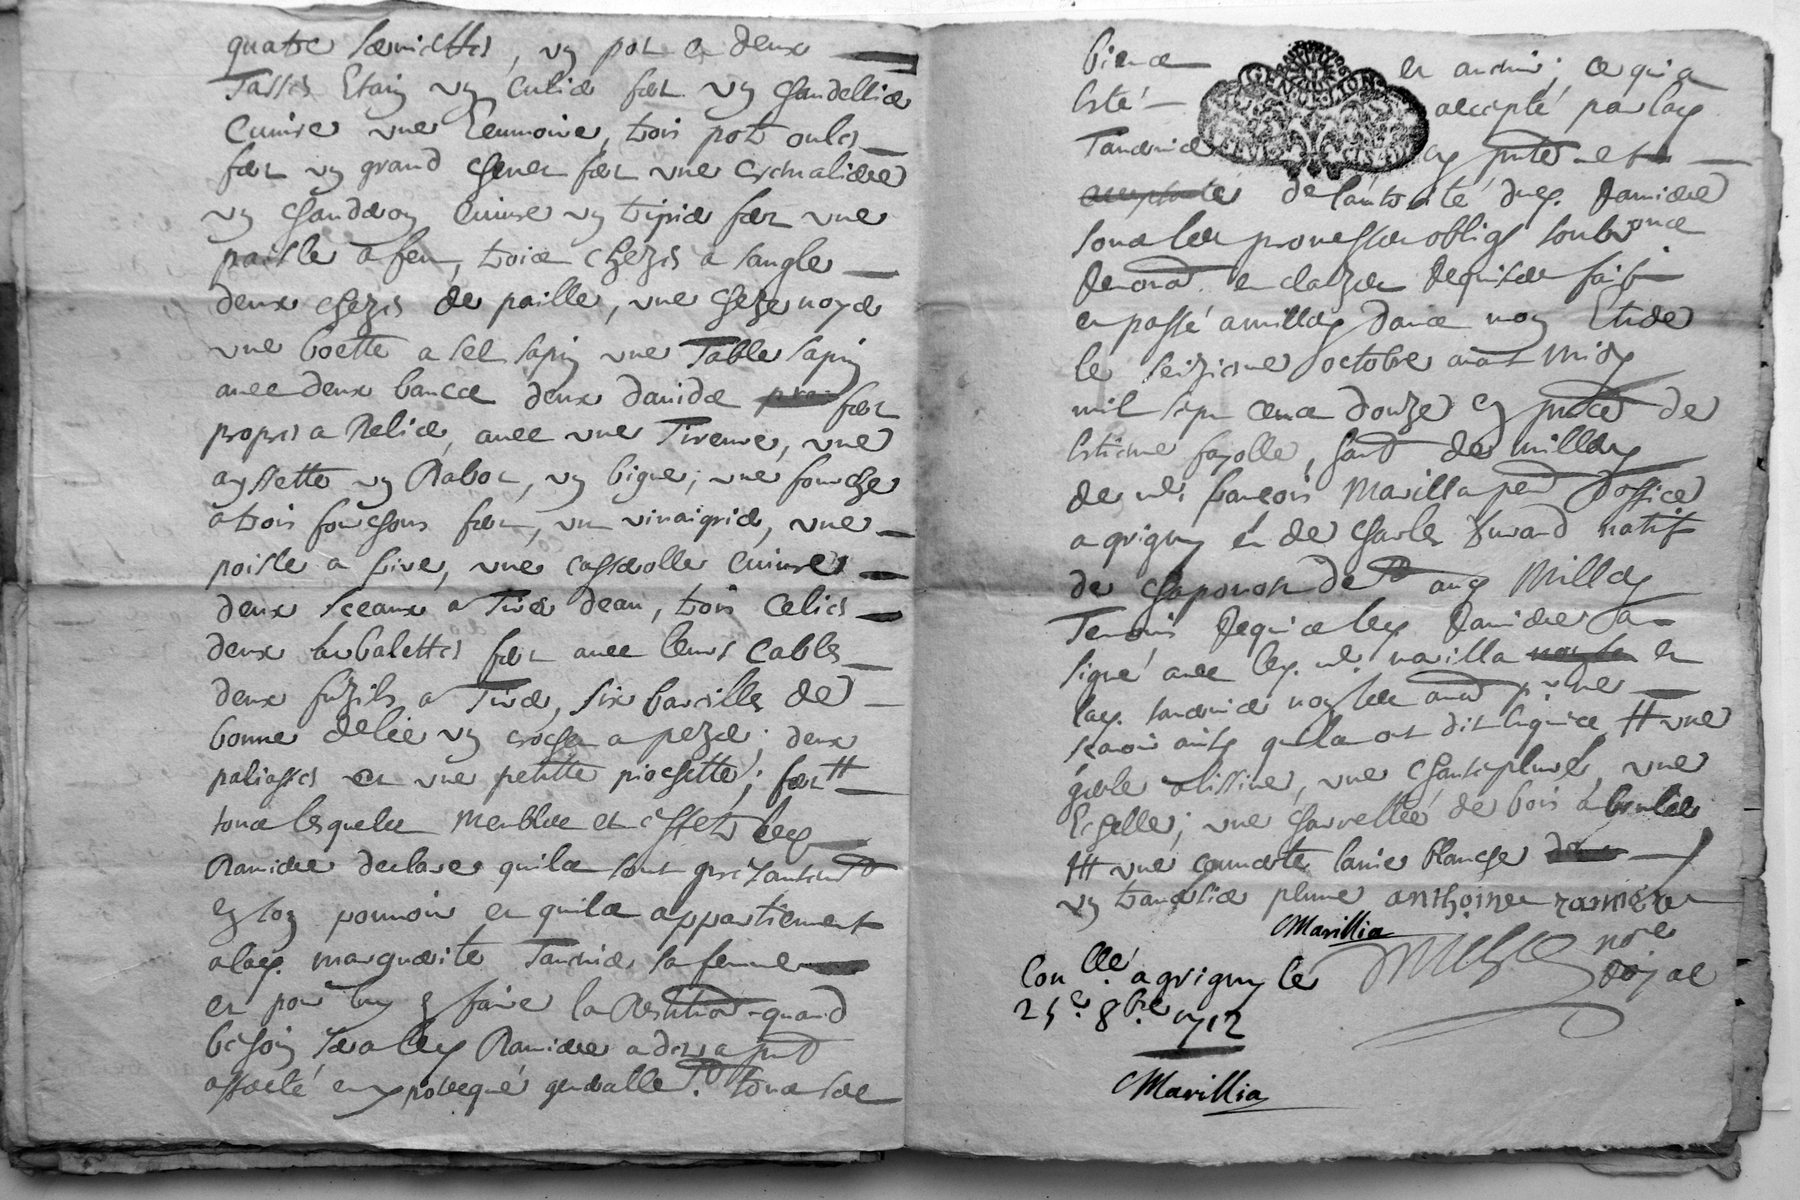 quatre serviettes, un pot et deux
Tasses Etain un culier fert un chandellier
Cuivre une Leumoire, trois pot oules
fert un grand chenet fert une cremaliere
un chauderon cuivre un tripier fert une
paisle a feu, trois chezes a sangle
deux chezes de paille, une cheze noyer
une boette a sel sapin une Table sapin
avec deux bancs deux davids fert
propres a Relier, avec une Tireuse, une
ayssette un Rabot, un bigue; une fourche
a trois fourchons fert, un vinaigrier, une
poisle a frire, une casserolle cuivre
deux sceaux a Tirer deau, trois celies
deux arbalettes fert avec leurs cables
deux fuzils a Tirer, six barrilles de
bonne delie un crochet a pezer; deux
paliasses et une petitte piochette; fert #
tous lesquels Meubles et effets led.
Ramiere declare quils sont presentement
en son pouvoir et quils appartiennent
a lad. marguerite Tavernier sa femme
et pour luy en faire la Restitution quand
besoin sera led. Ramiere a des a present
affecté en ypotequé generallement tous ses
biens et avenir; ce qui a
esté accepté par lad.
Tavernier cy presente et
de l'autorité dud. Ramiere
sous les promesses obligs soubs
Renond. et clauzes Requises fait
et passé a millery dans mon Etude
le seizieme octobre avant midy
mil sept cens douze en presence de
Estienne fayolle, habt de millery
de me francois Marillia pend d'office
a grigny et de Charles Durand natif
de chaponost demt aud Millery
Temoins Requis led Ramiere a
signé avec led. me marilla et
lad. tavernier non led aud pour ne
scavoir ainsy quils ont dit Enquis # une
gerle a lissive, une chanteplure, une
Echelle; une charrette de bois a bruler
# une couverte laine blanche
un traversier plume anthoine ramiere
Marillia
Con.llé a grigny le
25e 8bre 1712 nore
Royal
Marillia